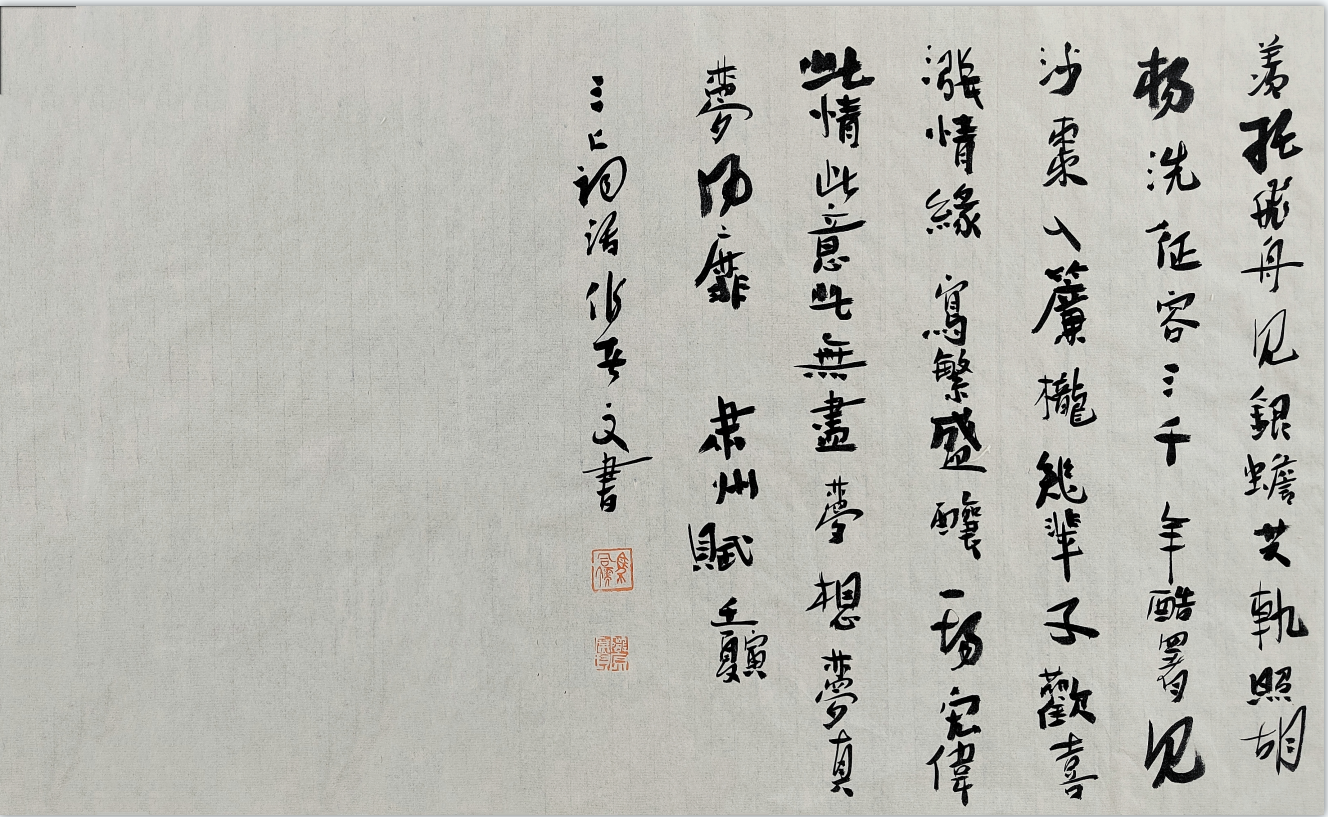 羡飛舟见銀蟾共軌照胡
杨洗征容三千年酷署见
沙棗入簾櫳幾輩子歡喜
漲情緣寫繁盛釀一场宏偉
此情此意此無盡夢想夢真
夢陽靡 肃州賦壬寅夏
三上詞話作者文書